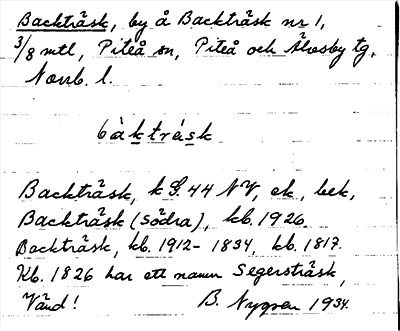 Backträsk, by å Backträsk nr 1,
3/8 mtl, Piteå sn, Piteå och Älvsby tg,
Norrb. l.
bàkträsk
Backträsk, k S. 44 NV, ek., bek,
Backträsk (södra), kb. 1926.
Backträsk, kb. 1912-1834, kb. 1817.
Kb. 1826 har ett namn Segersträsk,
Vänd! B. Nygren 1934.